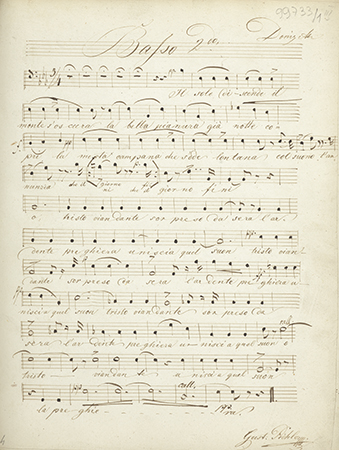 99733/14
Basso 2do
Il sole discende il
monte s'oscura la bella pianura già notte co-
prì la mesta campana che s'ode lontana col suono l'an
nunzia che il giorno finì
che il giorno
o tristo viandante sorpreso da sera l'ar
dente preghiera unisci a quel suon tristo vian
dante sorpreso da sera l'ardente preghiera u
nisci a quel suon tristo viandante sorpreso da
sera l'ardente preghiera unisci a quel suon o
tristo viandante unisci a quel suon
la preghie- ra.